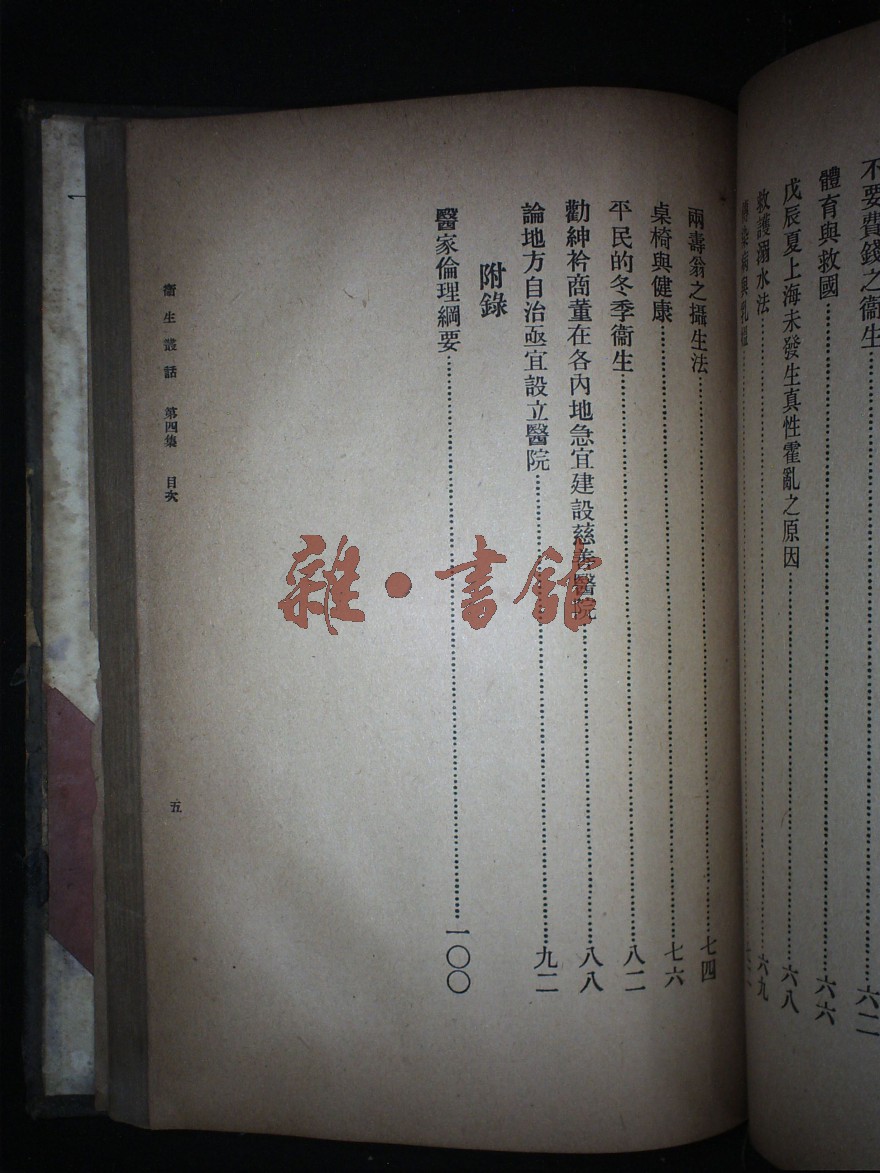 不要費錢之衞生……六二
體育與救國……六六
戊辰夏上海未發生真性霍亂之原因……六八
救護溺水法……六九
傳染病與乳媼……
兩壽翁之攝生法……七四
桌椅與健康……七六
平民的冬季衞生……八二
勸紳衿商董在各內地急宜建設慈善醫院……八八
論地方自治亟宜設立醫院……九二
附錄
醫家倫理綱要……一〇〇
衞生叢話 第四集 目次 五
雜·書館